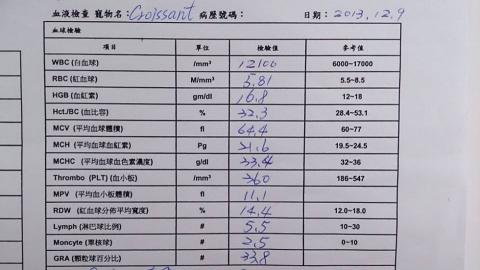 血液檢查 寵物名: Croissant 病歷號碼: 日期: 2013.12.9
血球檢驗
項目 單位 檢驗值 參考值
WBC (白血球) /mm³ 12100 6000~17000
RBC (紅血球) M/mm³ 5.81 5.5~8.5
HGB (血紅素) gm/dl 16.8 12~18
Hct./BC (血比容) % 32.3 28.4~53.1
MCV (平均血球體積) fl 64.4 60~77
MCH (平均血球血紅素) Pg 21.6 19.5~24.5
MCHC (平均血球血色素濃度) g/dl 33.4 32~36
Thrombo (PLT) (血小板) /mm³ 360 186~547
MPV (平均血小板體積) fl 11.1
RDW (紅血球分佈平均寬度) % 14.4 12.0~18.0
Lymph (淋巴球比例) # 5.5 10~30
Moncyte (單核球) # 2.5 0~10
GRA (顆粒球百分比) # 33.8